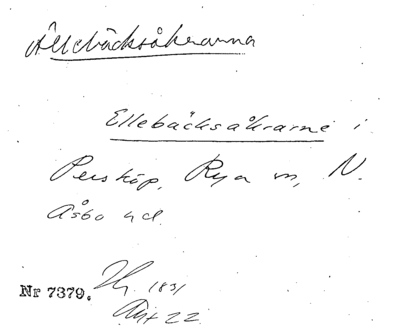 Ällebäcksåkrarna
Ellebäcksåkrarne i
Perstöp, Rya sn, N.
Åsbo hd.
Nr 7379. 1831
Akt 22